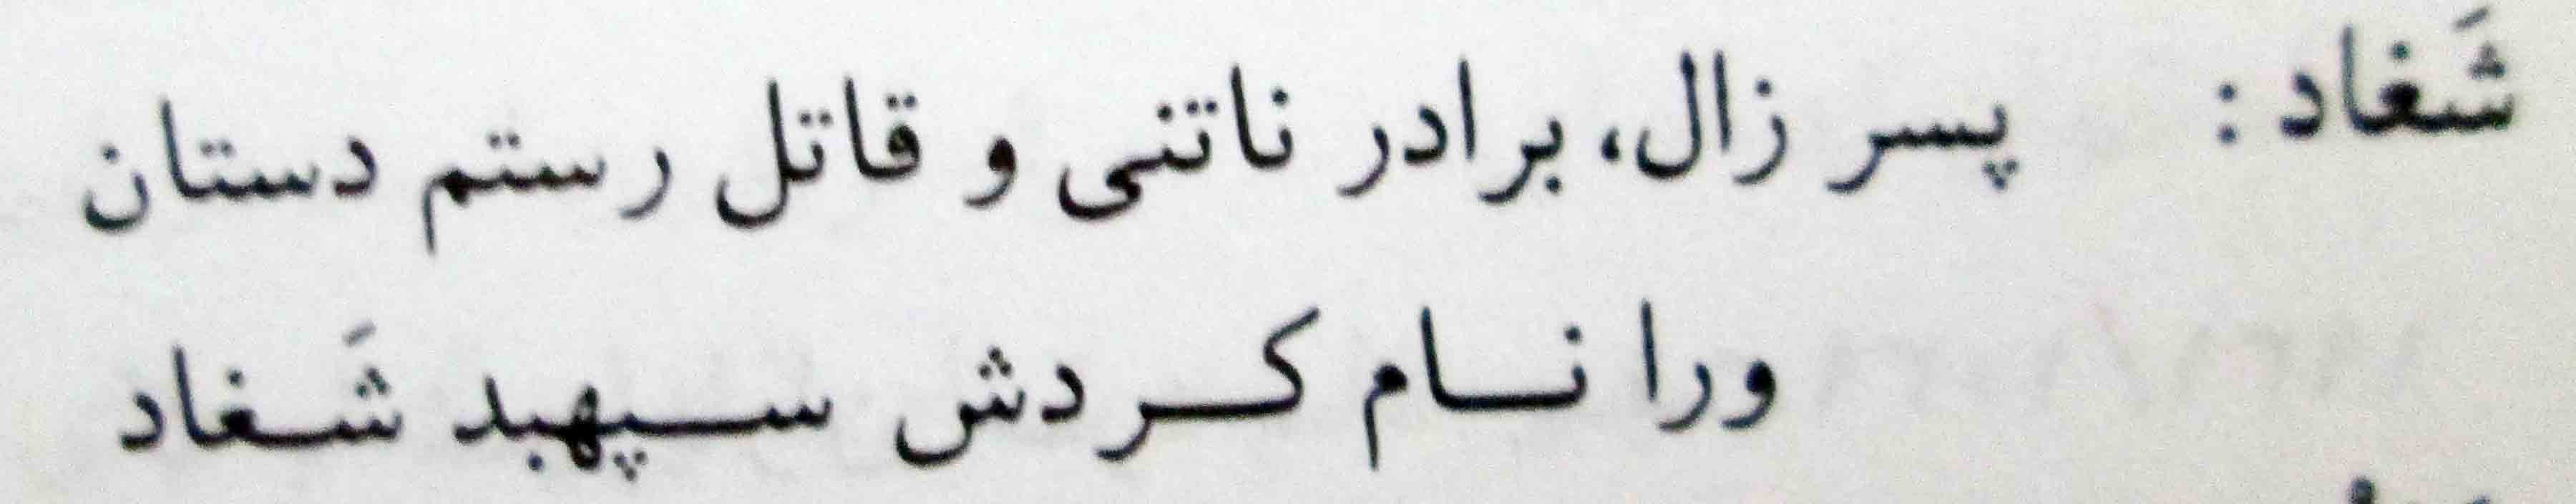 شَغاد : پسر زال، برادر ناتنی و قاتل رستم دستان
ورا نـام کـردش سـپهبد شَـغاد